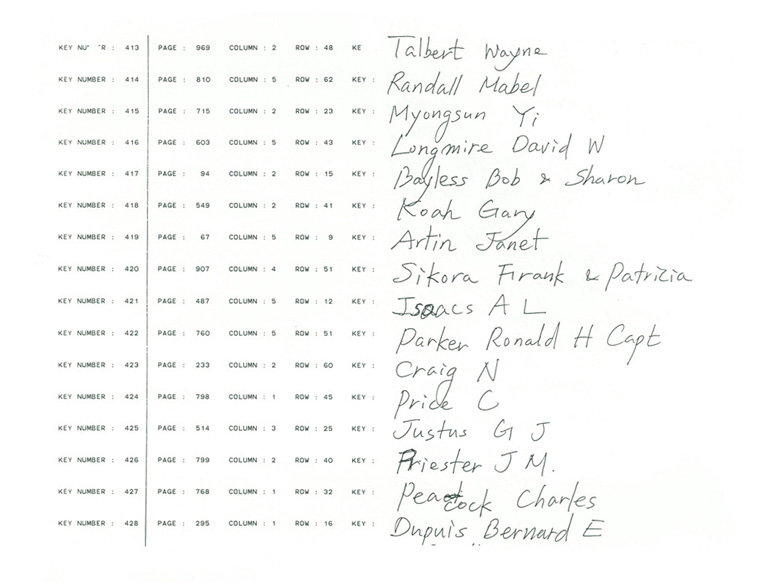 KEY NU  R : 413 PAGE : 969 COLUMN : 2 ROW : 48 KE Talbert Wayne
KEY NUMBER : 414 PAGE : 810 COLUMN : 5 ROW : 62 KEY : Randall Mabel
KEY NUMBER : 415 PAGE : 715 COLUMN : 2 ROW : 23 KEY : Myongsun Yi
KEY NUMBER : 416 PAGE : 603 COLUMN : 5 ROW : 43 KEY : Longmire David W
KEY NUMBER : 417 PAGE : 94 COLUMN : 2 ROW : 15 KEY : Bayless Bob & Sharon
KEY NUMBER : 418 PAGE : 549 COLUMN : 2 ROW : 41 KEY : Koah Gary
KEY NUMBER : 419 PAGE : 67 COLUMN : 5 ROW : 9 KEY : Artin Janet
KEY NUMBER : 420 PAGE : 907 COLUMN : 4 ROW : 51 KEY : Sikora Frank & Patrizia
KEY NUMBER : 421 PAGE : 487 COLUMN : 5 ROW : 12 KEY : Isaacs A L
KEY NUMBER : 422 PAGE : 760 COLUMN : 5 ROW : 51 KEY : Parker Ronald H Capt
KEY NUMBER : 423 PAGE : 233 COLUMN : 2 ROW : 60 KEY : Craig N
KEY NUMBER : 424 PAGE : 798 COLUMN : 1 ROW : 45 KEY : Price C
KEY NUMBER : 425 PAGE : 514 COLUMN : 3 ROW : 25 KEY : Justus G J
KEY NUMBER : 426 PAGE : 799 COLUMN : 2 ROW : 40 KEY : Priester J M.
KEY NUMBER : 427 PAGE : 768 COLUMN : 1 ROW : 32 KEY : Peacock Charles
KEY NUMBER : 428 PAGE : 295 COLUMN : 1 ROW : 16 KEY : Dupuis Bernard E